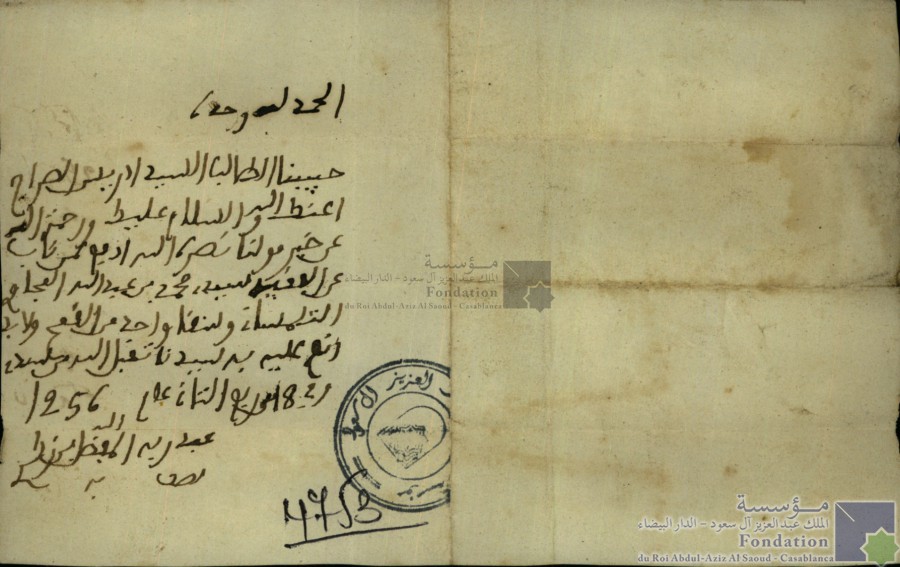 الحمد لله وحده
حبيبنا الطالب السيد ادريس السراج
اعزك الله والسلام عليك ورحمة الله
عن خير مولانا نصره الله ادفع لمن ناب
عن الفقيه السيد محمد بن عبد الله
التلمساني وسقا واحدا من القمح ولابد
انعم عليه به سيدنا تقبل الله من سيدنا
في 18 من ربيع الثاني عام 1256
عبد ربه
به
4753
مؤسسة
الملك عبد العزيز آل سعود - الدار البيضاء
Fondation
du Roi Abdul-Aziz Al Saoud - Casablanca
مؤسسة
الملك عبد العزيز آل سعود - الدار البيضاء
Fondation
du Roi Abdul-Aziz Al Saoud - Casablanca